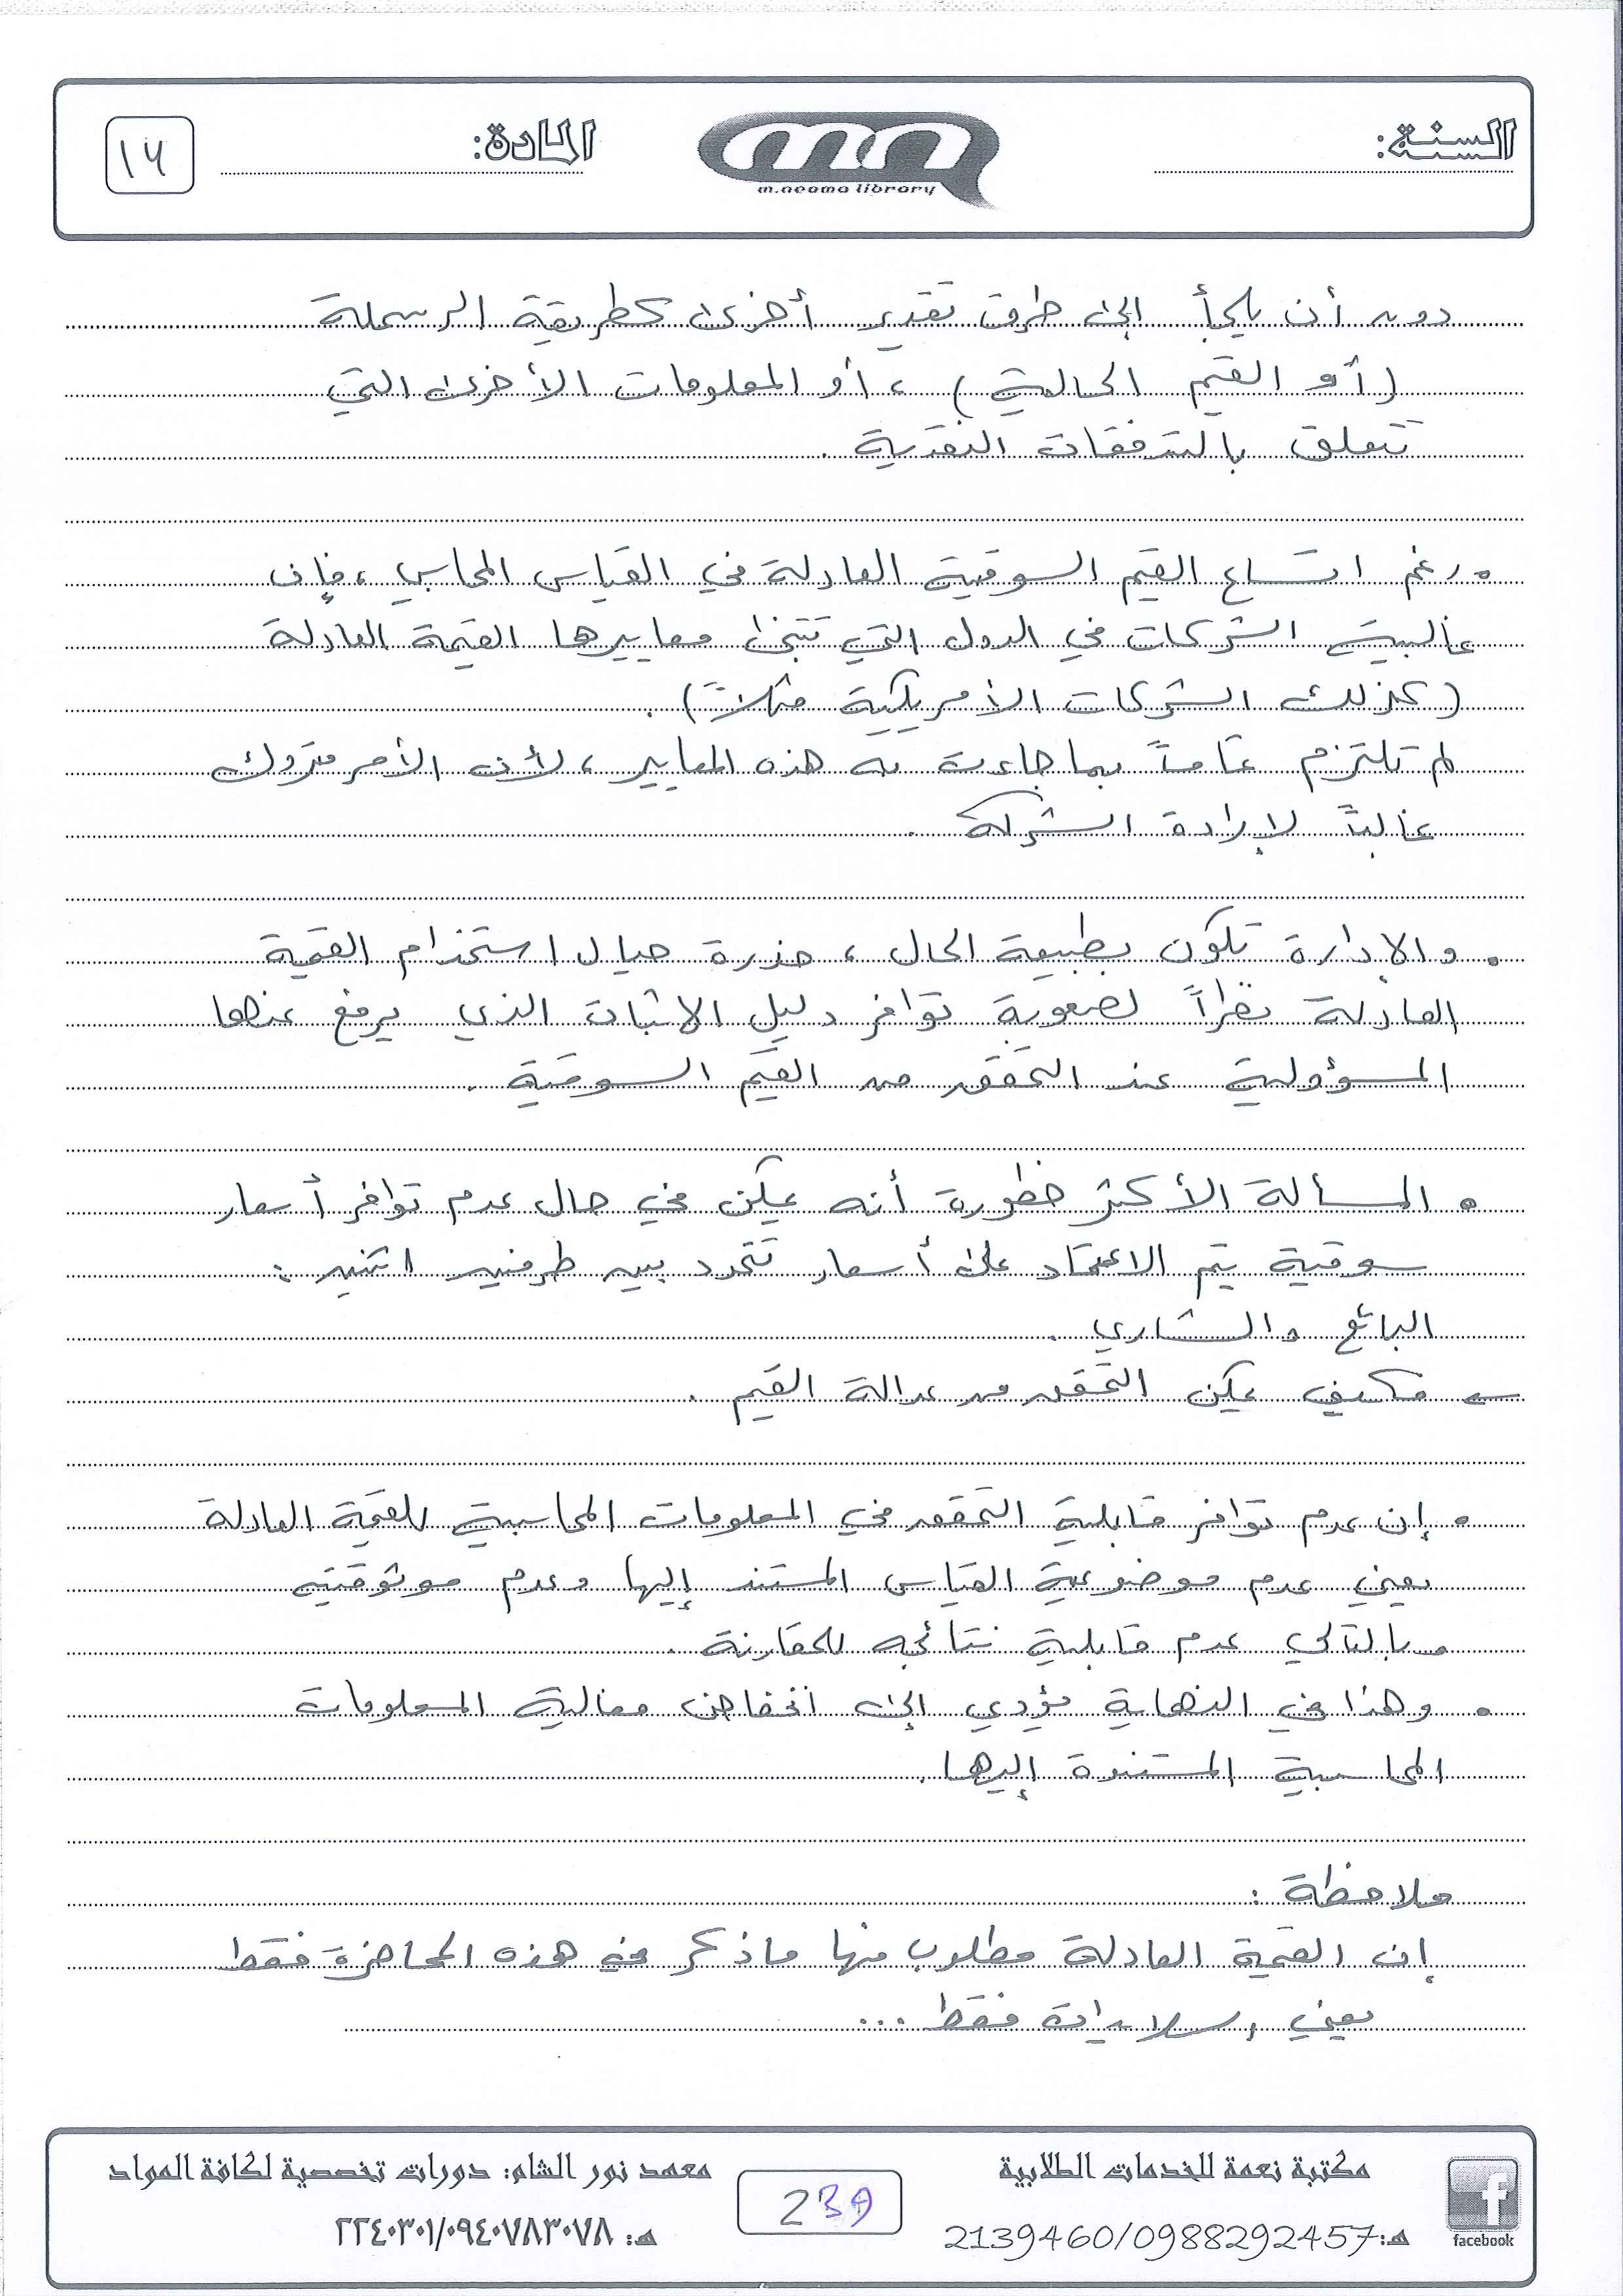 السنة:
m.neama library
المادة:
١٦
دون أن يلجأ إلى طرق تقدير أخرى كطريقة الرسملة
(أو القيم الحالية) ، أو المعلومات الأخرى التي
تتعلق بالتدفقات النقدية .
• رغم اتساع القيم السوقية العادلة في القياس المحاسبي ، فإن
غالبية الشركات في الدول التي تتبنى معاييرها القيمة العادلة
(كذلك الشركات الأمريكية مثلاً) .
لم تلتزم تماماً بما جاءت به هذه المعايير ، لأن الأمر متروك
غالباً لإرادة الشركة .
• والإدارة تكون بطبيعة الحال ، حذرة حيال استخدام القيمة
العادلة نظراً لصعوبة توافر دليل الاثبات الذي يرفع عنها
المسؤولية عند التحقق من القيم السوقية .
• المسألة الأكثر خطورة أنه يمكن في حال عدم توافر أسعار
سوقية يتم الاعتماد على أسعار تتحدد بين طرفين اثنين :
البائع والشاري .
← فكيف يمكن التحقق من عدالة القيم .
• إن عدم توافر قابلية التحقق في المعلومات المحاسبية للقيمة العادلة
يعني عدم موضوعية القياس المستند إليها وعدم موثوقيته
وبالتالي عدم قابلية نتائجه للمقارنة .
• وهذا في النهاية يؤدي إلى انخفاض فعالية المعلومات
المحاسبية المستندة إليها .
ملاحظة :
إن القيمة العادلة مطلوب منها ما ذكر في هذه المحاضرة فقط
يعني سلايدات فقط ...
مكتبة نعمة للخدمات الطلابية
هـ: 2139460/0988292457
facebook
239
معهد نور الشام: دورات تخصصية لكافة المواد
هـ: ٢٢٤٠٣٠١/٠٩٤٠٧٨٣٠٧٨